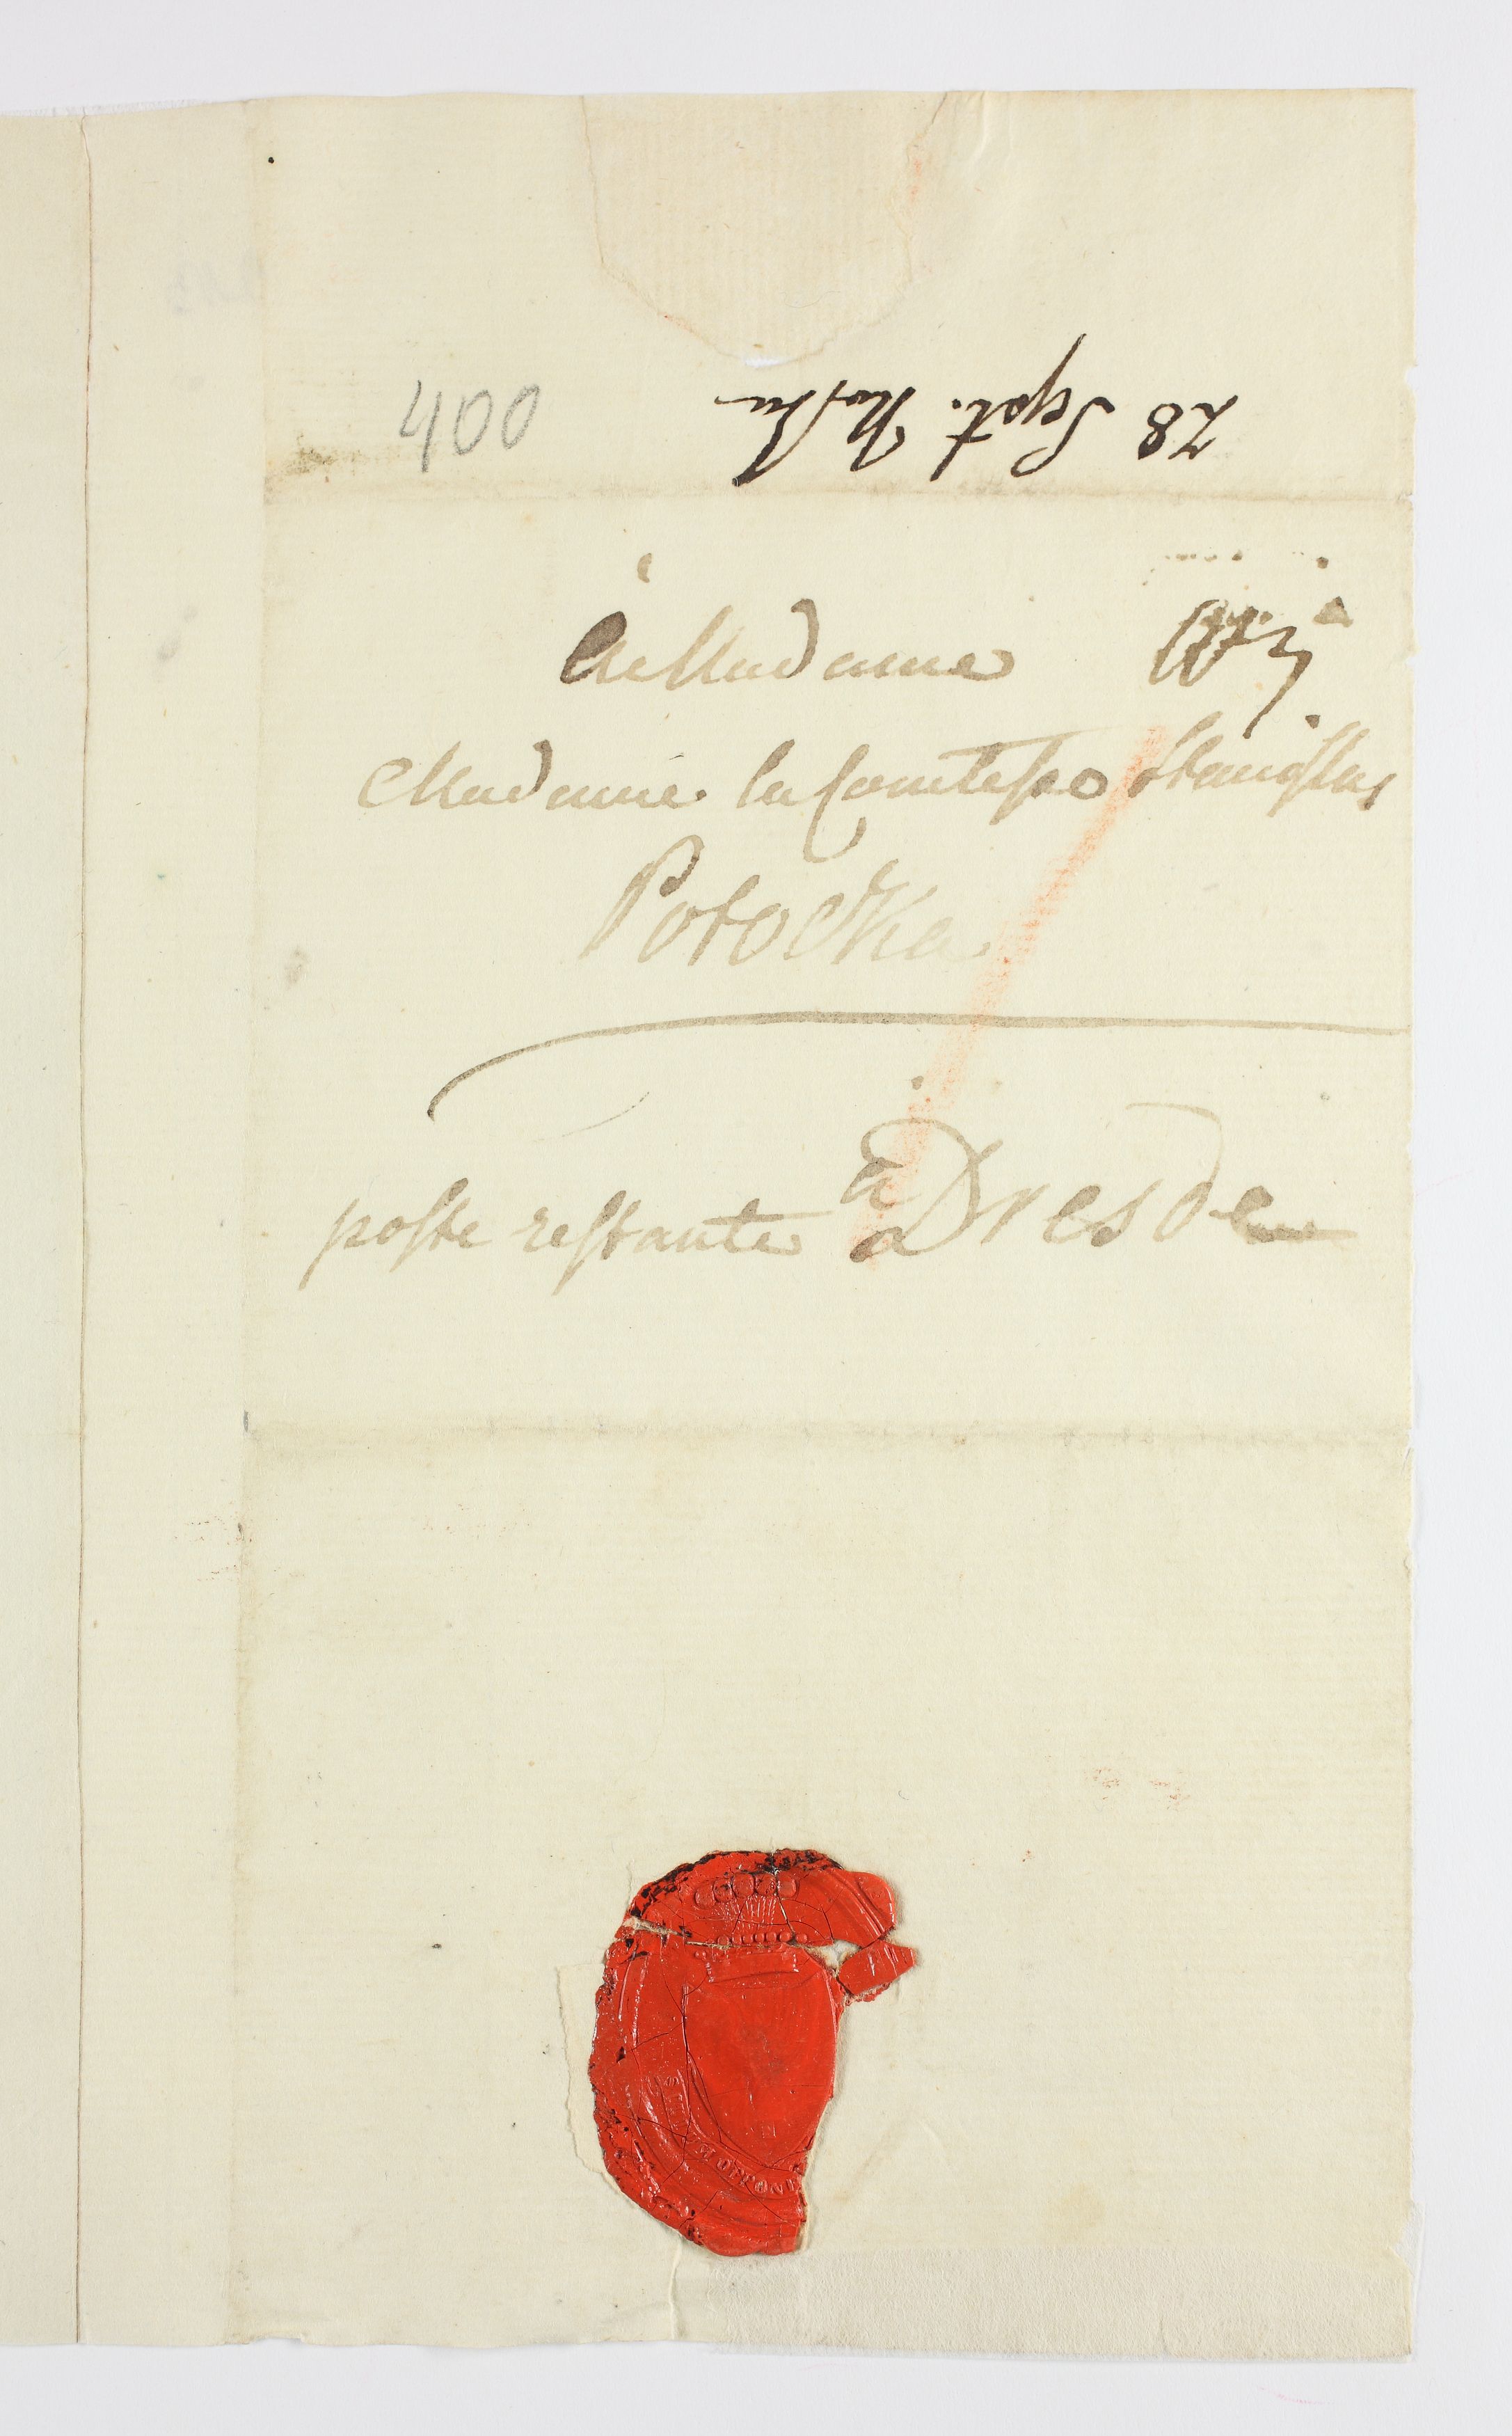 400
28 Sept.
à Madame
Madame la Comtesse Stanislas
Potocka
poste restante à Dresde